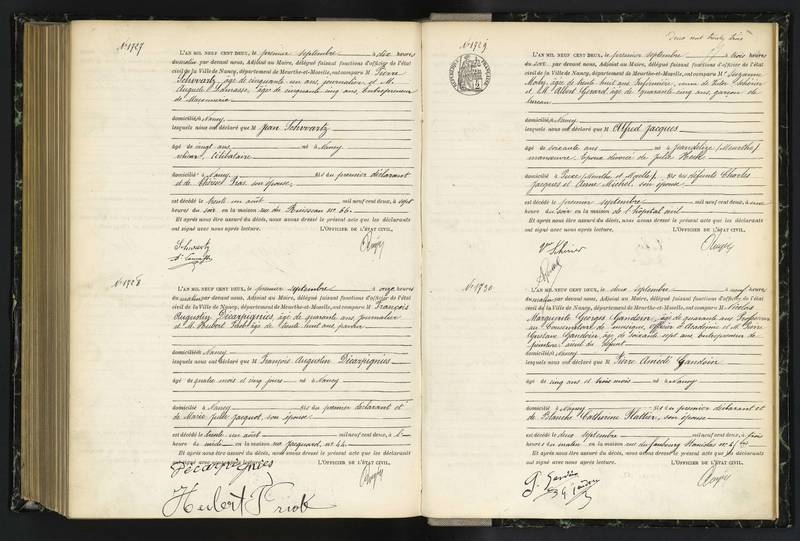 N° 1727
L'AN MIL NEUF CENT DEUX, le premier septembre à dix heures
du matin par devant nous, Adjoint au Maire, délégué faisant fonctions d'officier de l'état
civil de la Ville de Nancy, département de Meurthe-et-Moselle, ont comparu M. Pierre
Schwartz, âgé de cinquante ans, journalier et M.
Auguste âgé de cinquante cinq ans, entrepreneur
de Maçonnerie
domiciliés à Nancy
lesquels nous ont déclaré que M Jean Schwartz
âgé de vingt ans né à Nancy
célibataire
domicilié à Nancy fils du premier déclarant
et de Thérèse son épouse
est décédé le trente un août mil neuf cent deux, à sept
heures du soir en la maison rue du Ruisseau n° 66.
Et après nous être assuré du décès, nous avons dressé le présent acte que les déclarants
ont signé avec nous après lecture. L'OFFICIER DE L'ÉTAT CIVIL,
Schwartz
N° 1728
L'AN MIL NEUF CENT DEUX, le premier septembre à onze heures
du matin par devant nous, Adjoint au Maire, délégué faisant fonctions d'officier de l'état
civil de la Ville de Nancy, département de Meurthe-et-Moselle, ont comparu M. François
Augustin Décarpignies, âgé de quarante ans journalier
et M. Herbert âgé de trente huit ans
domiciliés à Nancy
lesquels nous ont déclaré que M François Augustin Décarpignies
âgé de quatre mois et cinq jours né à Nancy
domicilié à Nancy fils du premier déclarant et
de Marie Julie Jacquot, son épouse
est décédé le trente un août mil neuf cent deux, à
heures de midi en la maison rue Jacquard, n° 44.
Et après nous être assuré du décès, nous avons dressé le présent acte que les déclarants
ont signé avec nous après lecture. L'OFFICIER DE L'ÉTAT CIVIL,
Décarpignies
Herbert
Deux cent vingt
N° 1729
L'AN MIL NEUF CENT DEUX, le premier septembre à trois heures
du soir par devant nous, Adjoint au Maire, délégué faisant fonctions d'officier de l'état
civil de la Ville de Nancy, département de Meurthe-et-Moselle, ont comparu M. Suzanne
âgée de trente huit ans Infirmière, veuve de
et M. Albert Girard, âgé de quarante cinq ans, garçon de
bureau
domiciliés à Nancy
lesquels nous ont déclaré que M Alfred Jacques
âgé de soixante ans né à (Meurthe)
manœuvre, époux divorcé de Julie
domicilié à (Meurthe et Moselle) fils des défunts Charles
Jacques et Anne Michel, son épouse
est décédé le premier septembre mil neuf cent deux, à une
heure du soir en la maison de l'hôpital civil
Et après nous être assuré du décès, nous avons dressé le présent acte que les déclarants
ont signé avec nous après lecture. L'OFFICIER DE L'ÉTAT CIVIL,
N° 1730
L'AN MIL NEUF CENT DEUX, le deux septembre à neuf heures
du matin par devant nous, Adjoint au Maire, délégué faisant fonctions d'officier de l'état
civil de la Ville de Nancy, département de Meurthe-et-Moselle, ont comparu M. Nicolas
Marguerite Georges Gaudoin, âgé de quarante ans Professeur
au Conservatoire de musique, Officier d'Académie et M. Pierre
Gustave Gaudoin, âgé de soixante sept ans, entrepreneur de
peinture, aïeul du défunt
domiciliés à Nancy
lesquels nous ont déclaré que M Pierre Amédé Gaudoin
âgé de cinq ans et trois mois né à Nancy
domicilié à Nancy fils du premier déclarant et
de Blanche Catherine son épouse
est décédé le deux septembre mil neuf cent deux, à trois
heures du matin en la maison rue du faubourg Stanislas n°
Et après nous être assuré du décès, nous avons dressé le présent acte que les déclarants
ont signé avec nous après lecture. L'OFFICIER DE L'ÉTAT CIVIL,